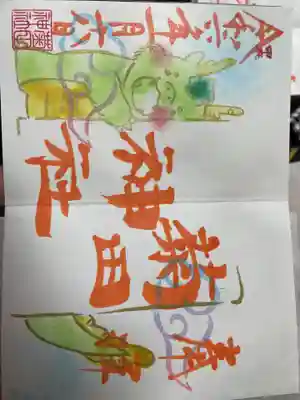 奉拝
田
神社
令和六年一月六日